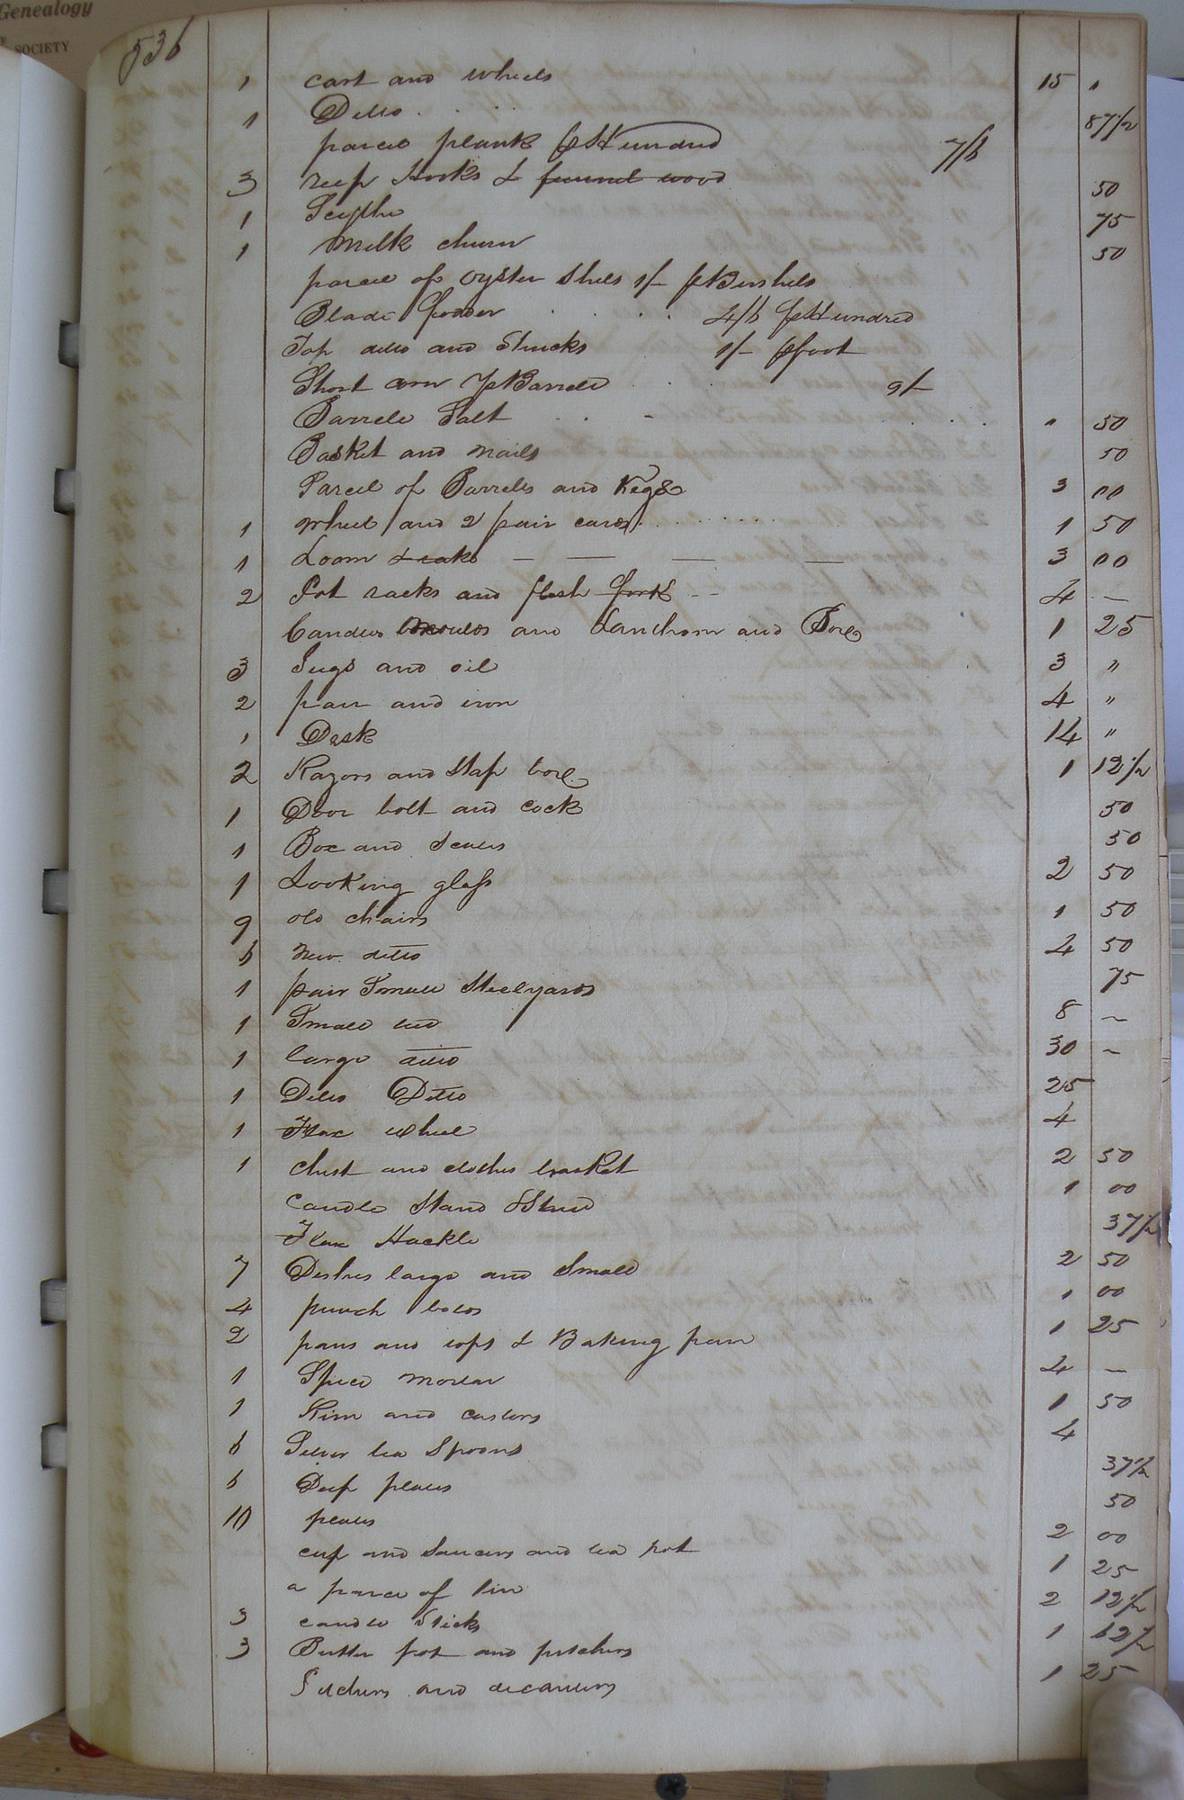 Genealogy
SOCIETY
536
1 cart and wheels 15 "
1 Ditto . . . 87 1/2
parcel plank ⅌ Hundred 7/6
3 reep Hooks & wood 50
1 Scythe 75
1 Milk churn 50
parcel of oyster Shels 1/- ⅌ Bushels
Blade fodder . . . . 4/6 ⅌ Hundred
Top ditto and Shucks 1/- ⅌ foot
Short corn ⅌ Barrele . . 9/-
Barrele Salt . . - . . . " 50
Basket and nails 50
Parcel of Barrels and Kegs 3 00
1 Wheel and 2 pair cards . . . . . . 1 50
1 Loom — — — — 3 00
2 Pot racks and flesh fork - - 4 —
Candles moulds and Lanthorn and Box 1 25
3 Jugs and oil 3 "
2 pair and iron 4 "
1 Desk 14 "
2 Razors and Stap box 1 12 1/2
1 Door bolt and cock 50
1 Box and Scales 50
1 Looking glass 2 50
9 old chairs 1 50
6 new ditto 4 50
1 pair Small Steelyards 75
1 Small bed 8 ~
1 large ditto 30 ~
1 Ditto Ditto 25
1 Flax wheel 4
1 Chest and clothes basket 2 50
Candle Stand 1 00
Flax Hackle 37 1/2
7 Dishes large and Small 2 50
4 punch boles 1 00
2 pans and cops & Baking pan 1 25
1 Spice mortar 4 —
1 and castors 1 50
6 Silver tea Spoons 4
6 Deep plates 37 1/2
10 plates 50
cup and Saucers and tea pot 2 00
a parcel of tin 1 25
3 candle Sticks 2 12 1/2
3 Butter pot and pitchers 1 12 1/2
and decanters 1 25